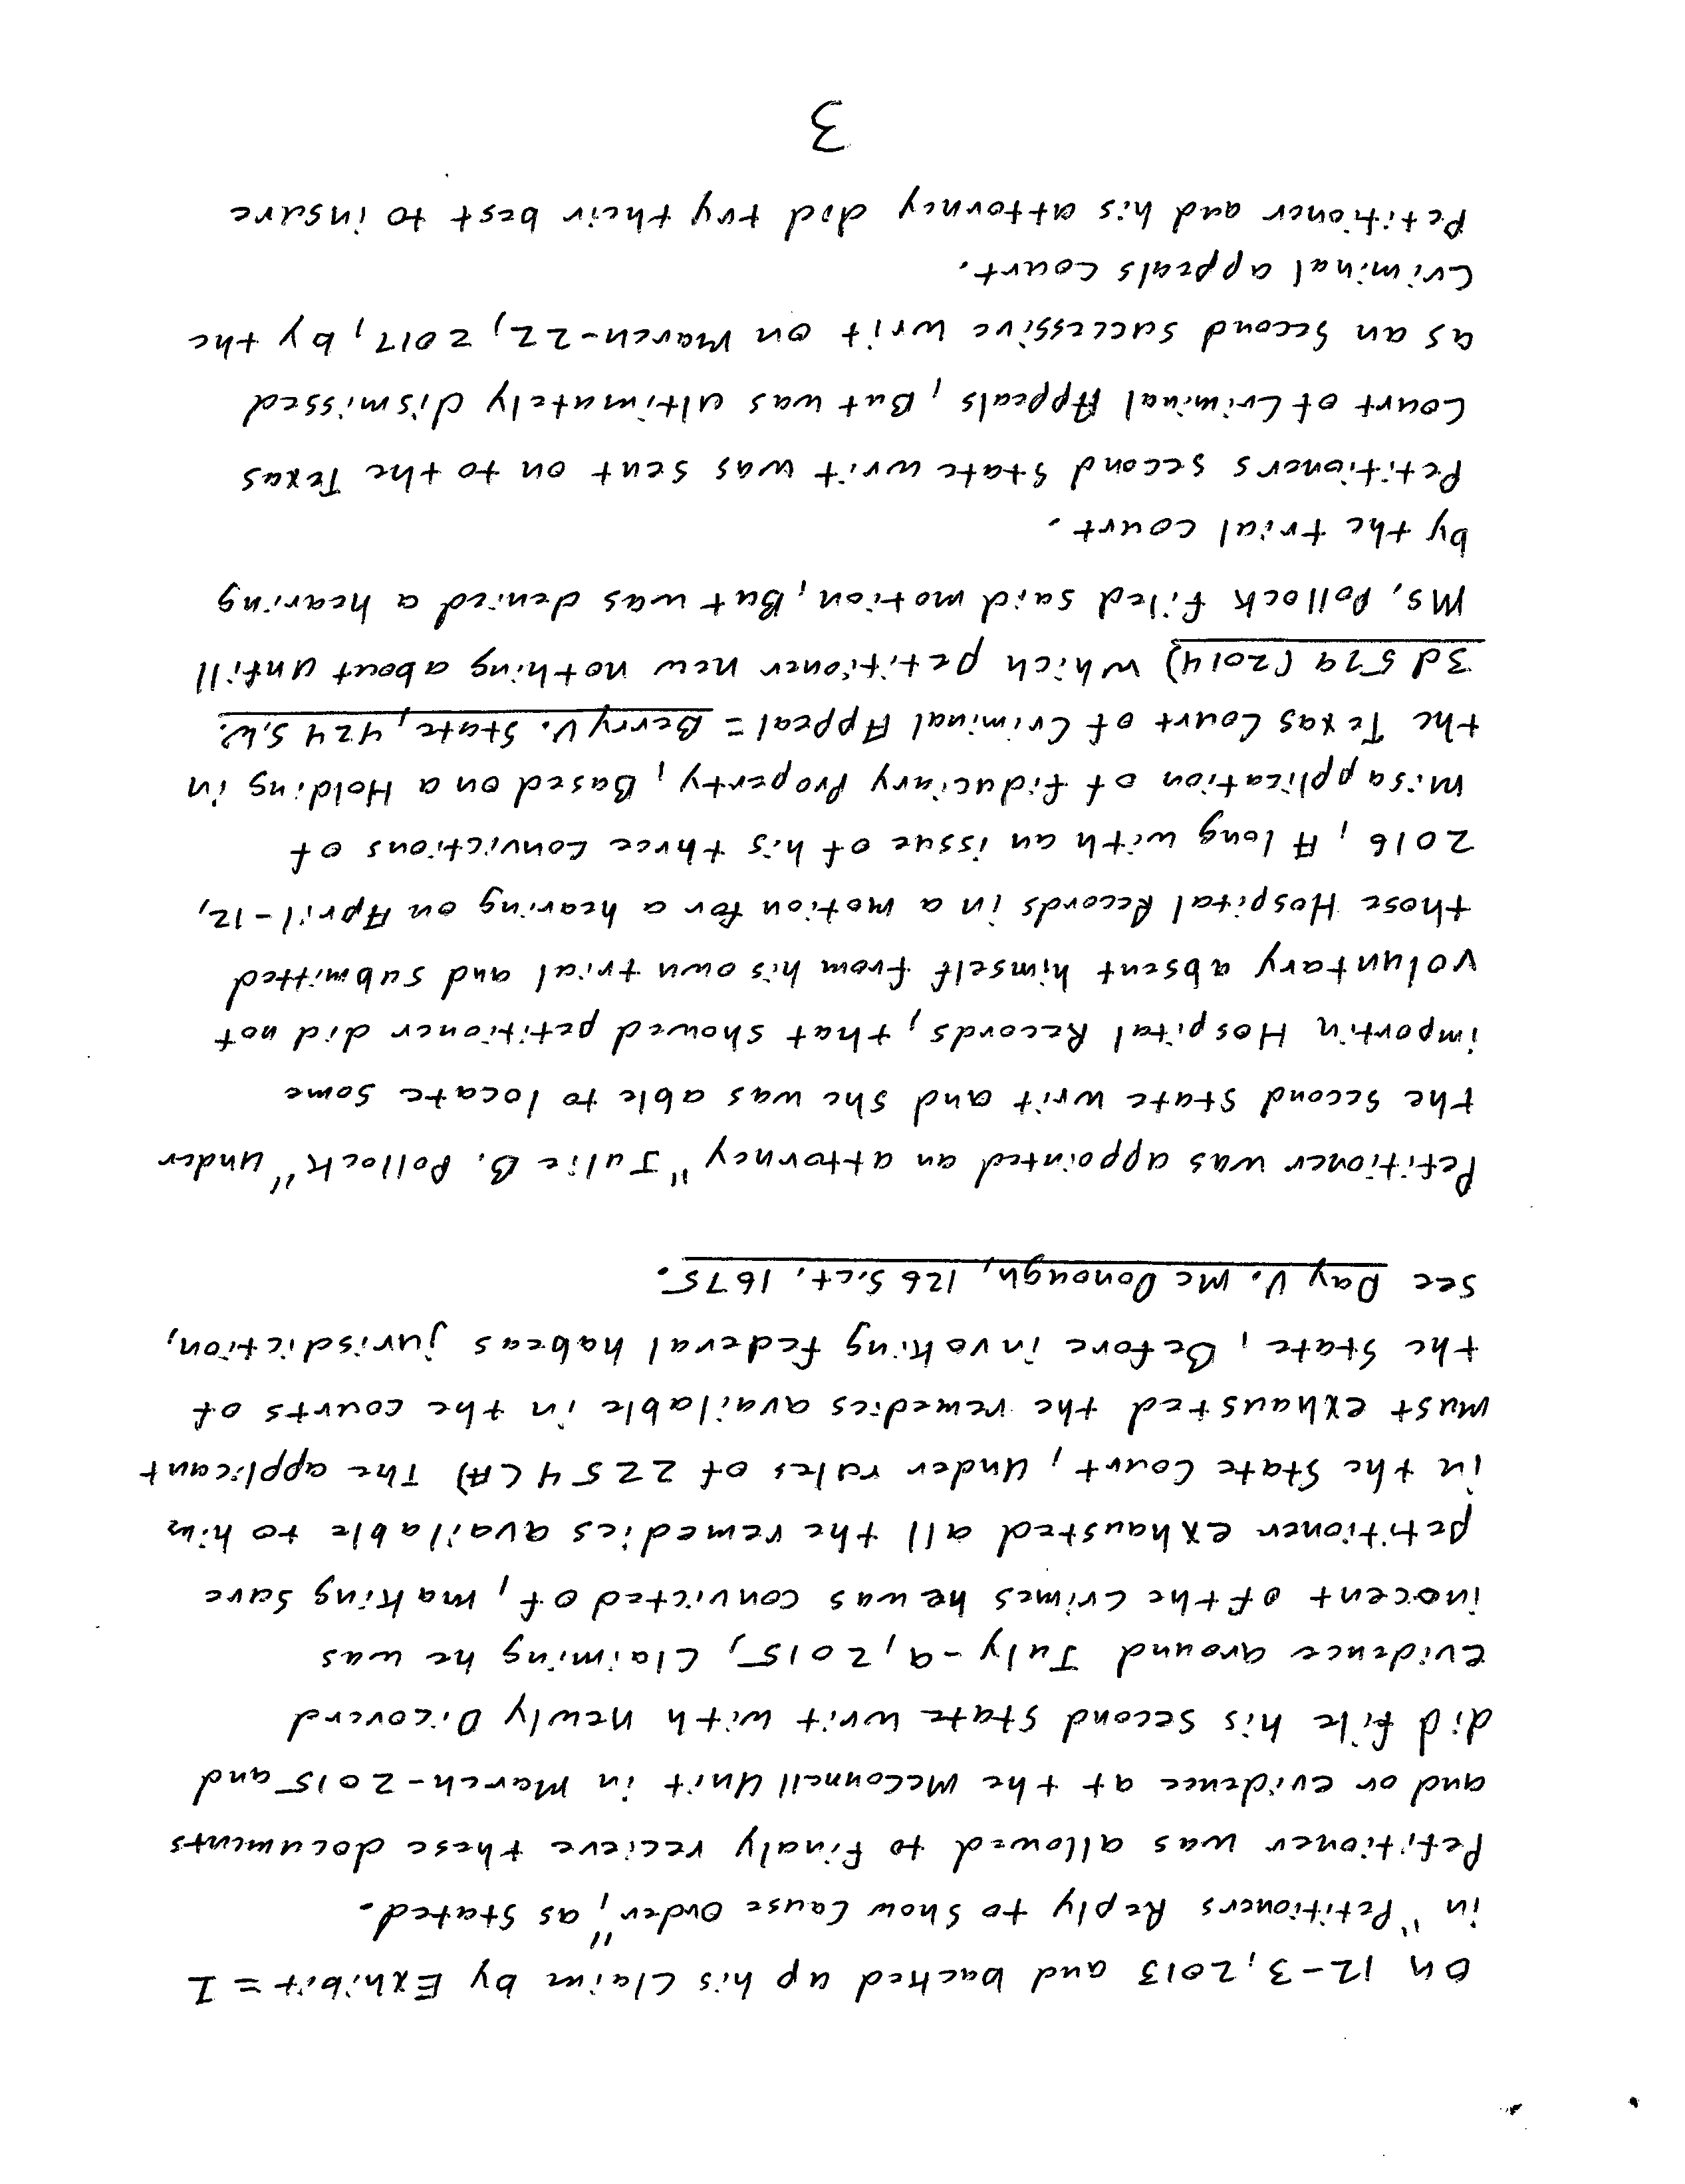 On 12-3, 2013 and backed up his Claim by Exhibit = I
in "Petitioners Reply to Show Cause Order", as Stated.
Petitioner was allowed to finaly recieve these documents
and or evidence at the McConnell Unit in March-2015 and
did file his second State writ with newly Dicoverd
Evidence around July-9, 2015, Claiming he was
inocent of the Crimes he was convicted of, making Sure
petitioner exhausted all the remedies available to him
in the State Court, Under rules of 2254(A) The applicant
must exhausted the remedies available in the courts of
the State, Before invoking federal habeas jurisdiction,
See Day V. McDonough, 126 S.ct. 1675.
Petitioner was appointed an attorney "Julie B. Pollock" under
the second State writ and she was able to locate some
importin Hospital Records, that showed petitioner did not
voluntary absent himself from his own trial and submitted
those Hospital Records in a motion for a hearing on April-12,
2016, A long with an issue of his three Convictions of
Misapplication of fiduciary Property, Based on a Holding in
the Texas Court of Criminal Appeal = Berry V. State, 424 S.W.
3d 579 (2014) which petitioner new nothing about untill
Ms. Pollock filed said motion, But was denied a hearing
by the trial court.
Petitioners second State writ was sent on to the Texas
Court of Criminal Appeals, But was ultimately dismissed
as an Second successive writ on March-22, 2017, by the
Criminal appeals Court.
Petitioner and his attorney did try their best to insure
3